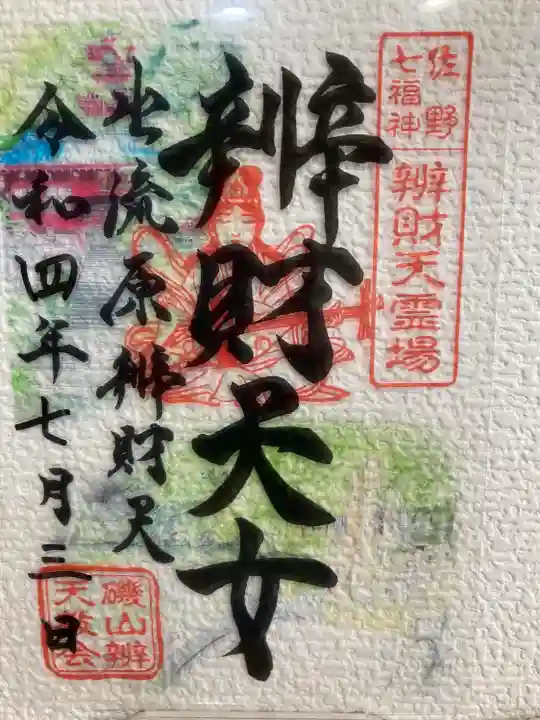 佐野
七福神
辨財天霊場
辨財天女
出流原辨財天
令和四年七月三日
磯山辨